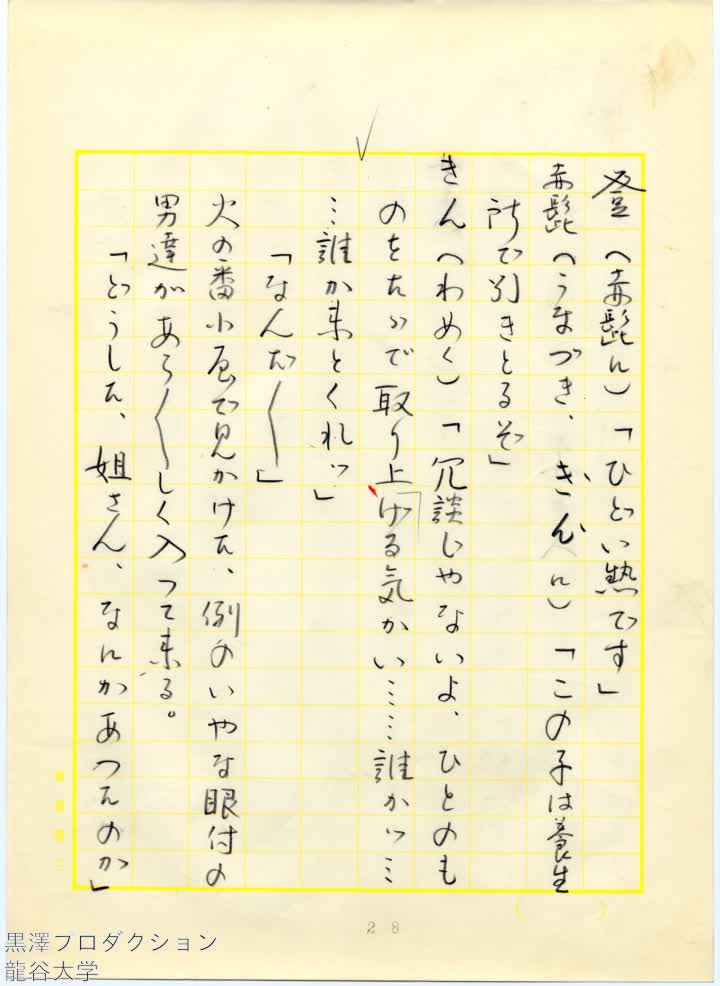 登（赤髭に）「ひどい熱です」
赤髭（うなづき、きんに）「この子は養生
所で引きとるぞ」
きん（わめく）「冗談じやないよ、ひとのも
のをたゞで取り上げる気かい……誰かッ…
…誰か来とくれッ」
「なんだ〳〵」
火の番小屋で見かけた、例のいやな眼付の
男達があら〳〵しく入つて来る。
「どうした、姐さん、なにかあつたのか」
28
黒澤プロダクション
龍谷大学